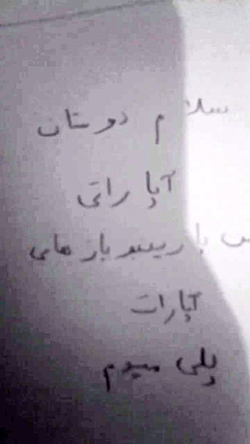 سلام دوستان
آپاراتی
با رینبو باز های
آپارات
پلی میدم